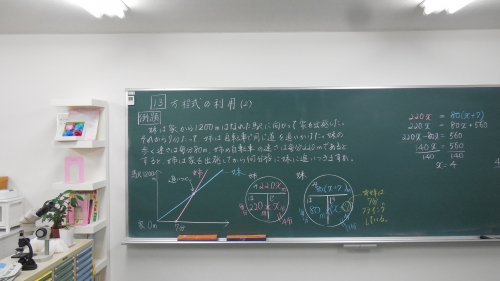 13 方程式の利用(2)
例題
妹は家から1200mはなれた駅に向かって家を出発した。
それから7分たって、姉は自転車で同じ道を追いかけた。妹の
歩く速さは毎分80m、姉の自転車の速さは毎分220mであると
すると、姉は家を出発してから何分後に妹に追いつきますか。
駅1200m
追いつく
姉
妹
家0m
7分
姉
220x
220
x
妹
80(x+7)
80
は
は
妹は
7分
220x = 80(x+7)
220x = 80x+560
220x-80x=560
140x=560
140 140
x=4